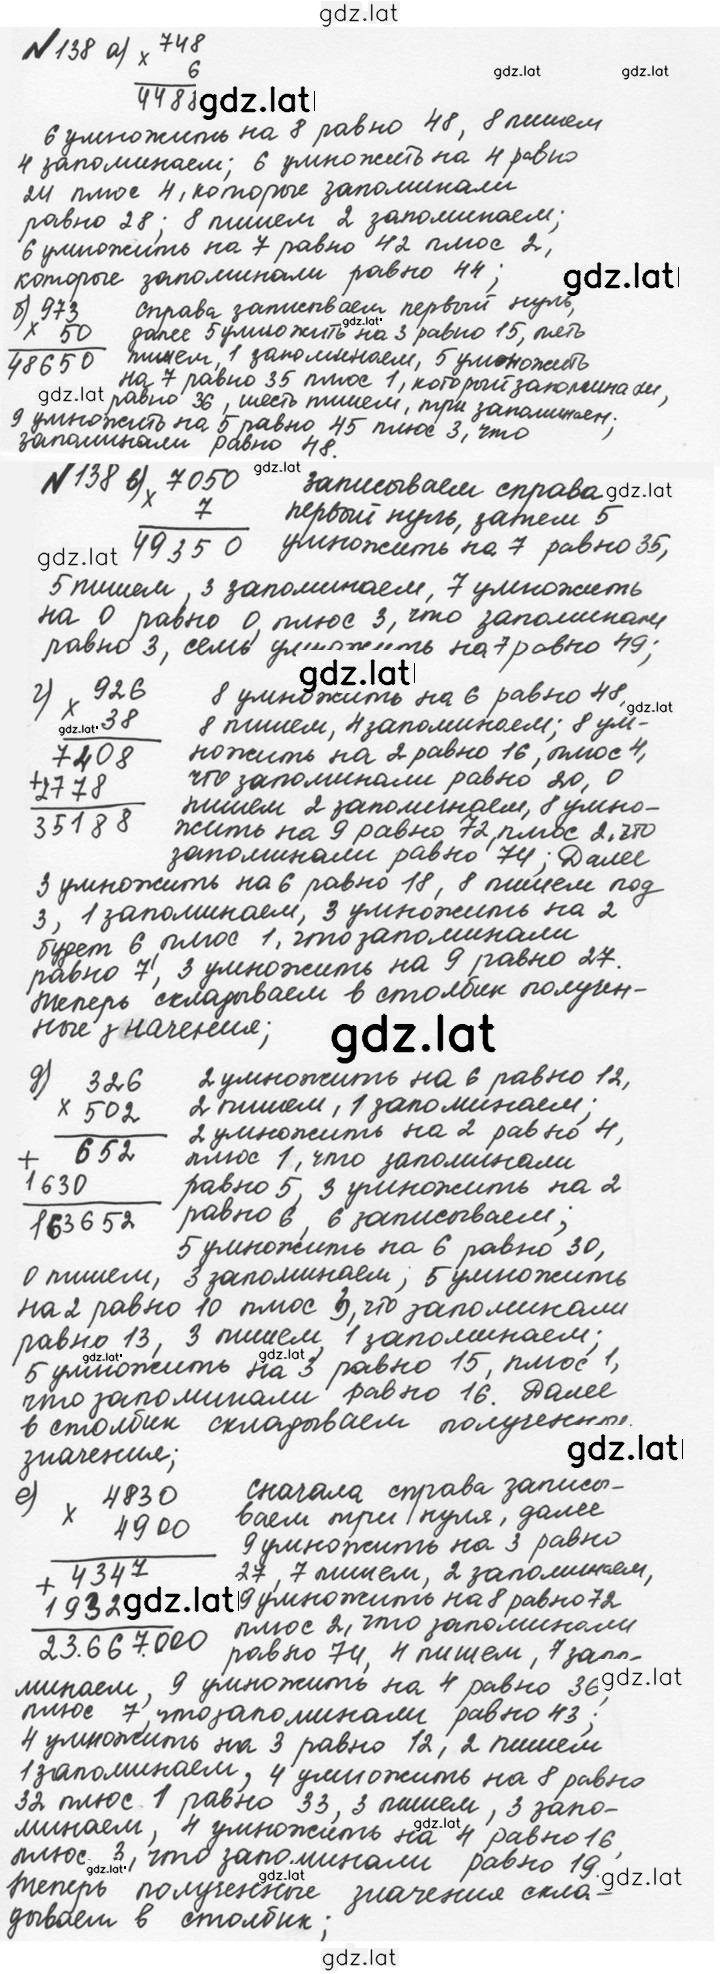 gdz.lat
№138 а) × 748
6
4488
gdz.lat
gdz.lat
gdz.lat
6 умножить на 8 равно 48, 8 пишем
4 запоминаем; 6 умножить на 4 равно
24 плюс 4, которые запоминали
равно 28; 8 пишем 2 запоминаем;
6 умножить на 7 равно 42 плюс 2,
которые запоминали равно 44;
gdz.lat
б) × 973
50
48650
справа записываем первый нуль,
gdz.lat
далее 5 умножить на 3 равно 15, пять
пишем, 1 запоминаем, 5 умножить
на 7 равно 35 плюс 1, который запоминали,
gdz.lat
равно 36, шесть пишем, три запоминаем;
9 умножить на 5 равно 45 плюс 3, что
запоминали равно 48.
№138 в) × 7050
7
49350
gdz.lat
записываем справа
gdz.lat
первый нуль, затем 5
умножить на 7 равно 35,
gdz.lat
5 пишем, 3 запоминаем, 7 умножить
на 0 равно 0, плюс 3, что запоминали
равно 3, семь умножить на 7 равно 49;
gdz.lat
г) × 926
38
7408
+2778
35188
gdz.lat
8 умножить на 6 равно 48,
gdz.lat
8 пишем, 4 запоминаем; 8 ум-
ножить на 2 равно 16, плюс 4,
что запоминали равно 20, 0
пишем 2 запоминаем, 8 умно-
жить на 9 равно 72, плюс 2, что
запоминали равно 74; Далее
3 умножить на 6 равно 18, 8 пишем под
3, 1 запоминаем, 3 умножить на 2
будет 6 плюс 1, что запоминали
равно 7, 3 умножить на 9 равно 27.
Теперь складываем в столбик получен-
ные значения;
gdz.lat
д) 326
× 502
+ 652
1630
163652
2 умножить на 6 равно 12,
2 пишем, 1 запоминаем;
2 умножить на 2 равно 4,
плюс 1, что запоминали
равно 5, 3 умножить на 2
равно 6, 6 записываем;
5 умножить на 6 равно 30,
0 пишем, 3 запоминаем; 5 умножить
на 2 равно 10 плюс 3, что запоминали
равно 13, 3 пишем, 1 запоминаем;
gdz.lat
gdz.lat
5 умножить на 3 равно 15, плюс 1,
что запоминали равно 16. Далее
в столбик складываем полученные
значения;
gdz.lat
е) 4830
× 4900
+ 4347
1932
23.667.000
gdz.lat
сначала справа записы-
ваем три нуля, далее
9 умножить на 3 равно
27, 7 пишем, 2 запоминаем,
9 умножить на 8 равно 72
плюс 2, что запоминали
равно 74, 4 пишем, 7 запо-
минаем, 9 умножить на 4 равно 36,
gdz.lat
плюс 7, что запоминали равно 43;
4 умножить на 3 равно 12, 2 пишем
1 запоминаем, 4 умножить на 8 равно
32 плюс 1 равно 33, 3 пишем, 3 запо-
минаем, 4 умножить на 4 равно 16,
gdz.lat
плюс 3, что запоминали равно 19.
gdz.lat
gdz.lat
Теперь полученные значения скла-
дываем в столбик;
gdz.lat